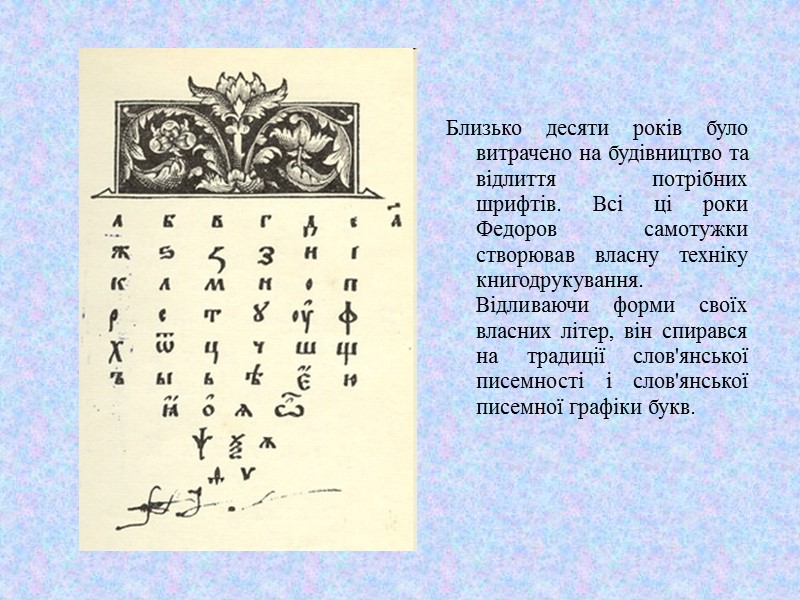 а б в г д є
а҃
ж ѕ ꙁ з и і
к л м н о п
р с т ꙋ оу ф
х ѿ ц ч ш щ
ъ ы ь ѣ є҃ ю
ꙗ о ѧ ѿ
ѱ ѯ ѧ
ѵ
Близько десяти років було
витрачено на будівництво та
відлиття потрібних
шрифтів. Всі ці роки
Федоров самотужки
створював власну техніку
книгодрукування.
Відливаючи форми своїх
власних літер, він спирався
на традиції слов'янської
писемності і слов'янської
писемної графіки букв.